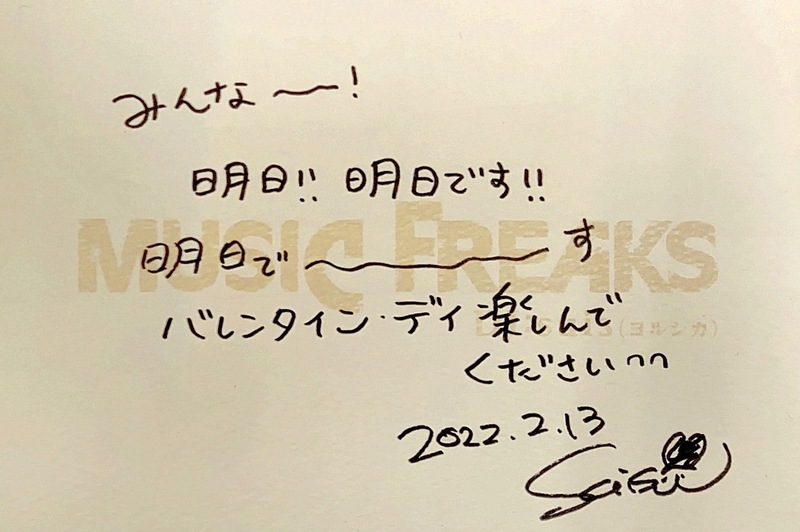 みんな〜!
明日!! 明日です!!
MUSIC FREAKS
明日で〜〜〜す
バレンタイン・デイ楽しんで
(ヨルシカ)
くださいᴖᴖ
2022.2.13